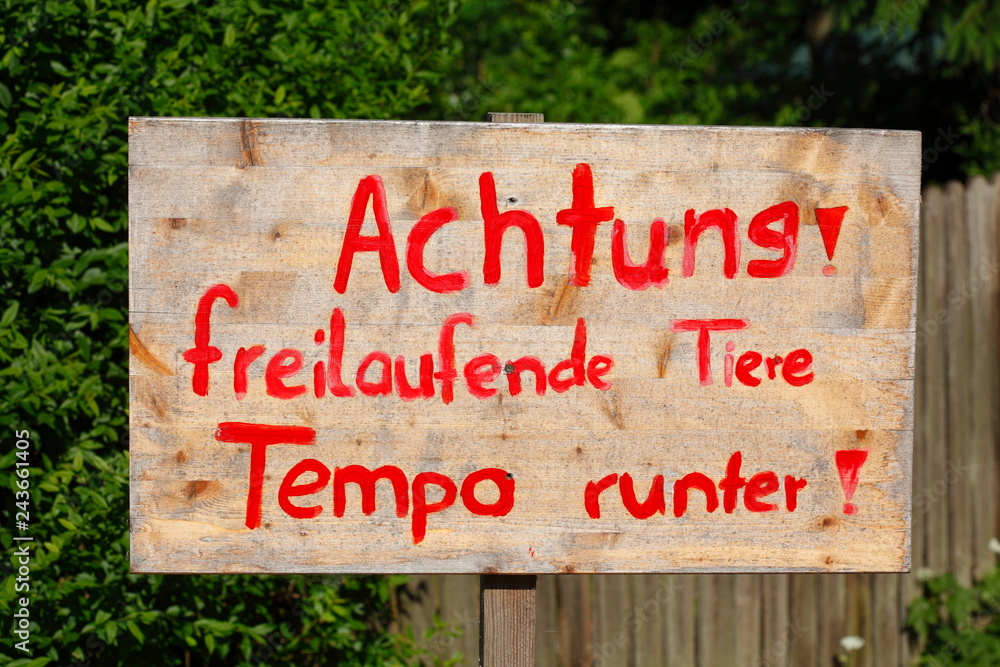 Achtung!
freilaufende Tiere
Tempo runter!
Adobe Stock | #243661405